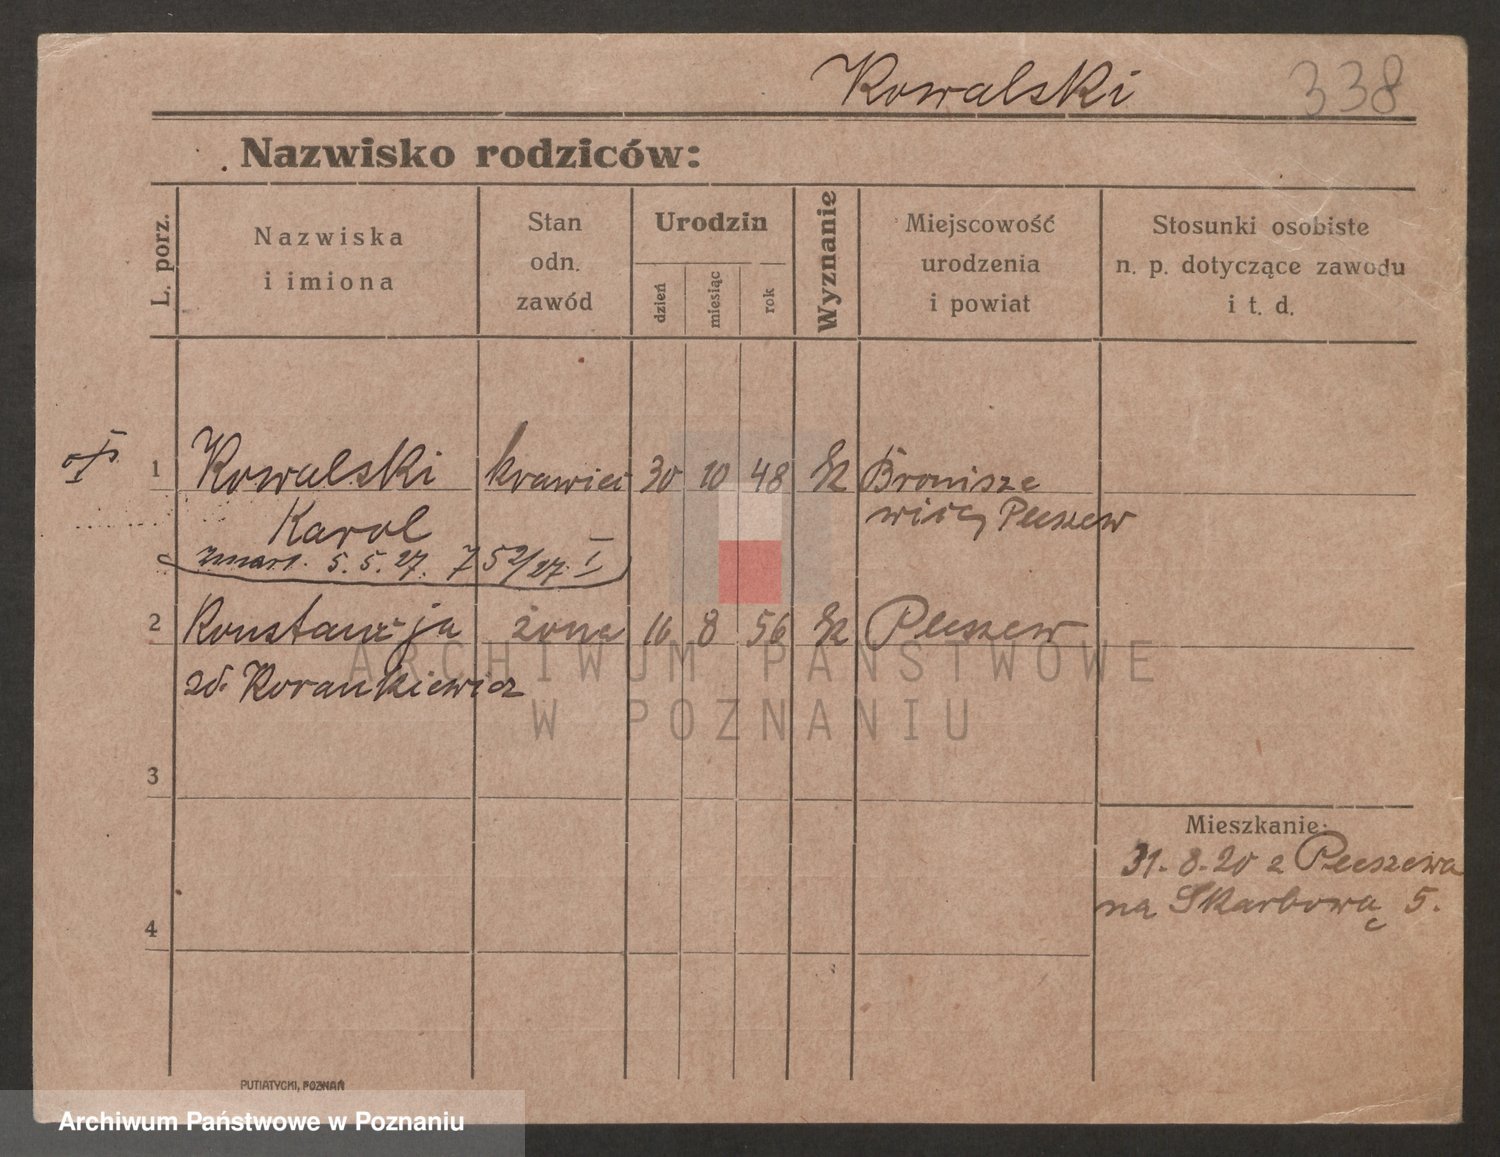 Kowalski 338
Nazwisko rodziców:
L. porz.
Nazwiska
i imiona
Stan
odn.
zawód
Urodzin
dzień
miesiąc
rok
Wyznanie
Miejscowość
urodzenia
i powiat
Stosunki osobiste
n. p. dotyczące zawodu
i t. d.
1 Kowalski krawiec 30 10 48 Bronisze
Karol wice, Pleszew
zmarł. 5.5.27. 752/27 I
2 Konstancja żona 16 8 56 Pleszew
zd. Korankiewicz
ARCHIWUM PAŃSTWOWE
W POZNANIU
3
Mieszkanie:
31.8.20 z Pleszewa
na Skarbową 5.
4
PUTIATYCKI, POZNAŃ
Archiwum Państwowe w Poznaniu